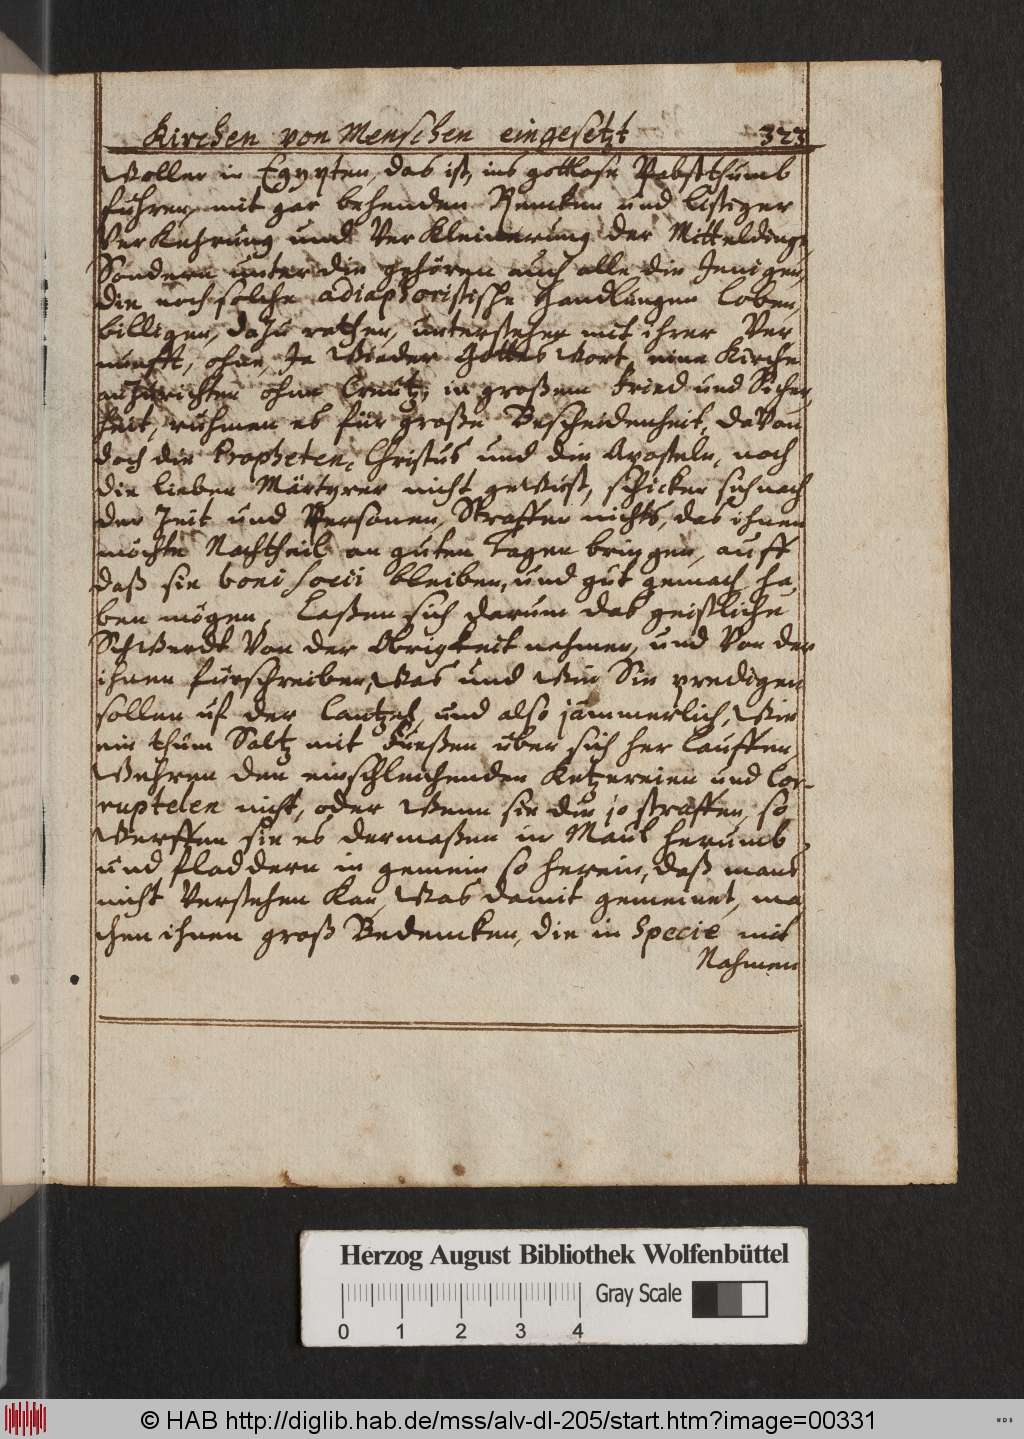 Kirchen von Menschen eingesetzt 323
Woller in Egypten, das ist, ins gottlose Pabstthumb
fuhren, mit gar behenden Renken und listiger
Verkehrung und Verkleinerung der Mitteldinge,
Sondern unter die gehören auch alle die Jenigen,
die noch solche adiaphoristische Handlungen loben,
billigen, dazu rathen, unterstehen mit ihrer Ver
nunfft, ohne, Ja Wieder Gottes Wort, eine Kirche
anzurichten ohne Creutz, in großem Fried und Sicher,
heit, ruhmen es für große Bescheidenheit, davon
doch die Propheten, Christus und die Aposteln, noch
die lieben Märtyrer nicht gewust, schicken sich nach
der Zeit und Personen, Straffen nichts, das ihnen
möchte Nachtheil an guten Tagen bringen, auff
daß sie boni socii bleiben, und gut gemach ha,
ben mögen, Laßen sich darum das geistliche
Schwerdt Von der Obrigkeit nehmen, und Von den
ihnen fürschreiben, Was und Wie Sie predigen
sollen uf der Cantzel, und also jämmerlich, Wie
ein thum Saltz mit Fueßen über sich her lauffen,
Wehren den einschleichenden Ketzereien und Cor-
ruptelen nicht, oder Wenn sie die jo straffen, so
Werffen sie es dermaßen in Maul herumb,
und fladdern in gemein so herein, daß mans
nicht Verstehen Kan, Was damit gemeinet, ma
chen ihnen groß Bedencken, die in Specie mit
Nahmen
Herzog August Bibliothek Wolfenbüttel
Gray Scale
0 1 2 3 4
© HAB http://diglib.hab.de/mss/alv-dl-205/start.htm?image=00331